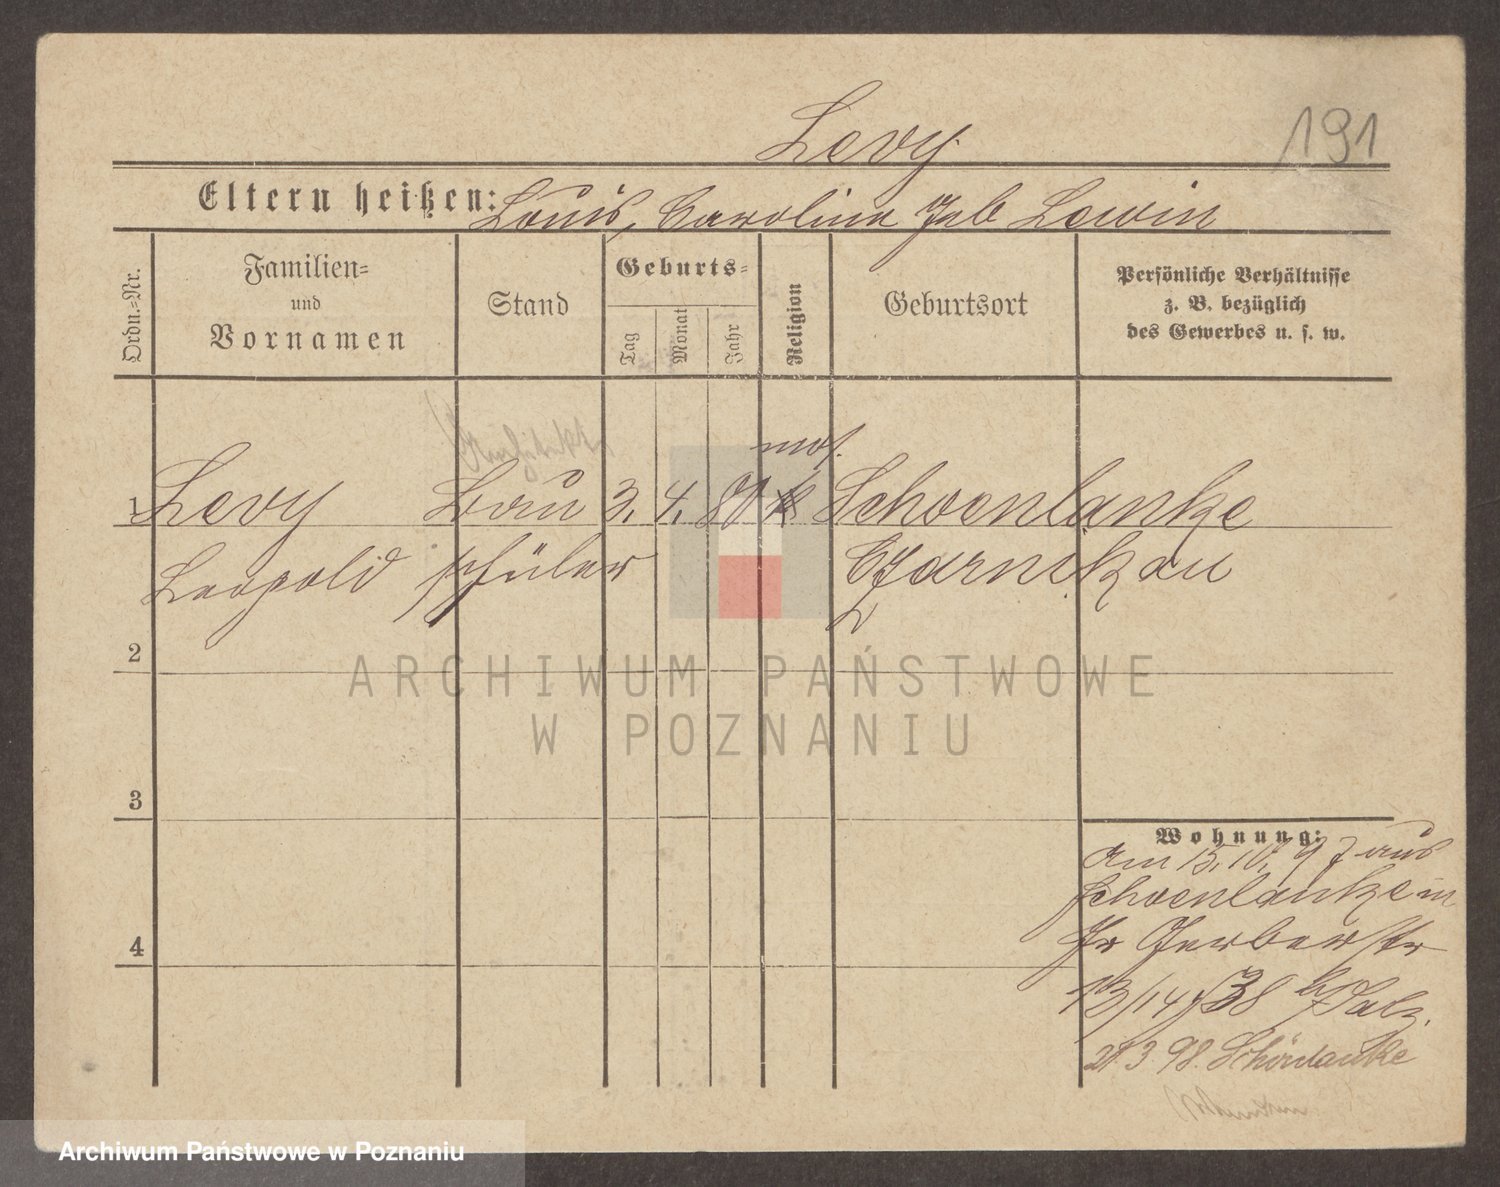 Levy
191
Eltern heißen: Louis, Karoline geb Lewin
Ordn.=Nr.
Familien=
und
Vornamen
Stand
Geburts=
Tag
Monat
Jahr
Religion
Geburtsort
Persönliche Verhältnisse
z. B. bezüglich
des Gewerbes u. s. w.
mos.
1 Levy Bau 3. 4. 80 Schoenlanke
Leopold schüler Czarnikau
2
ARCHIWUM PAŃSTWOWE
W POZNANIU
3
Wohnung:
am 15. 10. 97 aus
Schoenlanke in
Gerberstr
13/14 38 b Salz.
21. 3. 98. Schönlanke
4
Archiwum Państwowe w Poznaniu